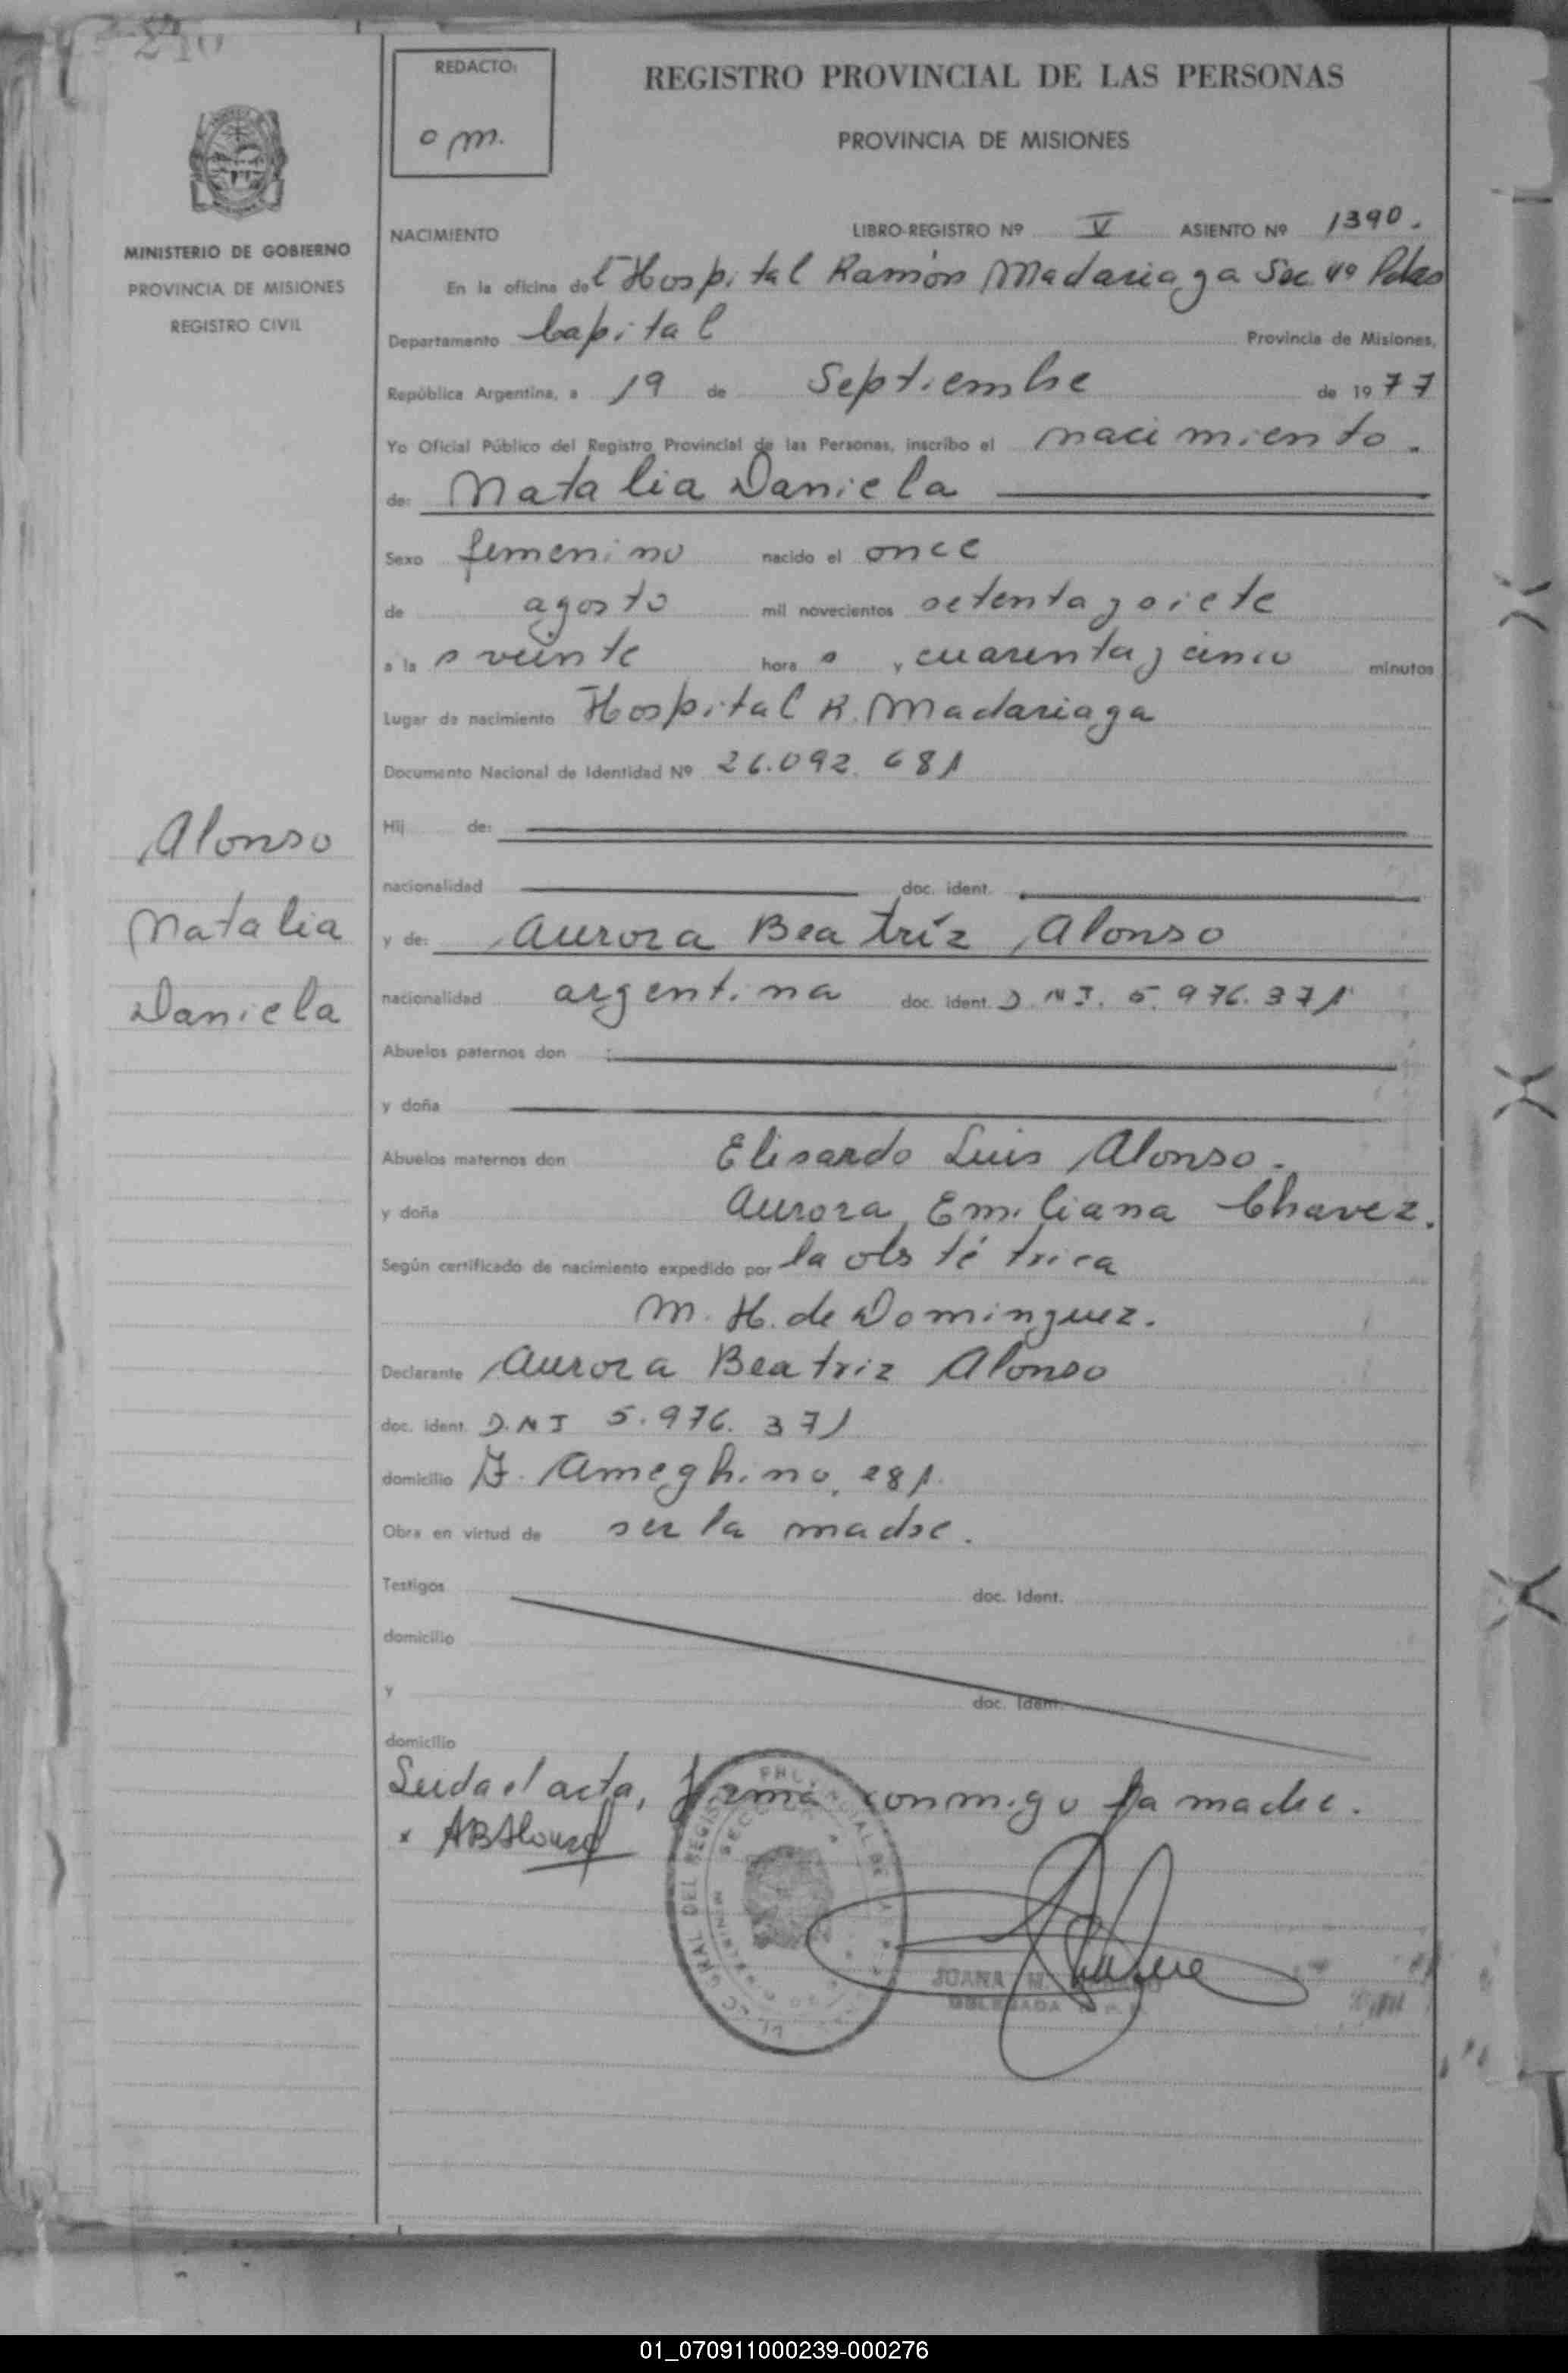 REDACTO:
o m.
REGISTRO PROVINCIAL DE LAS PERSONAS
PROVINCIA DE MISIONES
MINISTERIO DE GOBIERNO
PROVINCIA DE MISIONES
REGISTRO CIVIL
NACIMIENTO LIBRO-REGISTRO Nº V ASIENTO Nº 1390.
En la oficina del Hospital Ramón Madariaga Sec. 4º Pdas
Departamento Capital Provincia de Misiones,
República Argentina, a 19 de Septiembre de 1977
Yo Oficial Público del Registro Provincial de las Personas, inscribo el nacimiento.
de: Natalia Daniela
Sexo femenino nacido el once
de agosto mil novecientos setenta y siete
a las veinte horas y cuarenta y cinco minutos
Lugar de nacimiento Hospital R. Madariaga
Documento Nacional de Identidad Nº 26.092.681
Alonso
Natalia
Daniela
Hij de:
nacionalidad doc. ident.
y de: Aurora Beatríz Alonso
nacionalidad argentina doc. ident. D.N.I. 5.976.371
Abuelos paternos don
y doña
Abuelos maternos don Elisardo Luis Alonso.
y doña Aurora Emiliana Chavez.
Según certificado de nacimiento expedido por la obstétrica
M. H. de Dominguez.
Declarante Aurora Beatriz Alonso
doc. ident. D.N.I 5.976.371
domicilio F. Ameghino, 281.
Obra en virtud de ser la madre.
Testigos doc. Ident.
domicilio
y doc. Ident.
domicilio
Leida el acta, firma conmigo la madre.
x ABAlonso
JUANA M.
DELEGADA
01_070911000239-000276